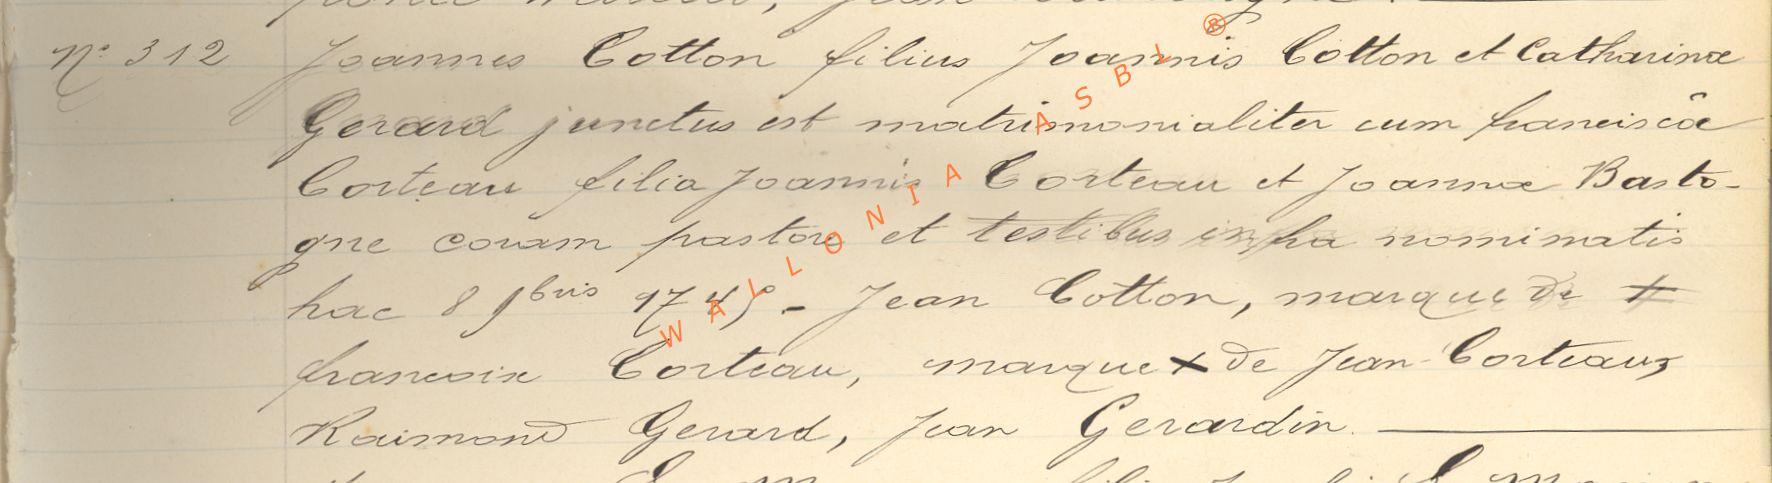 N° 312 Joannes Cotton filius Joannis Cotton et Catharinæ
Gerard junctus est matrimonialiter cum franciscâ
Corteau filia Joannis Corteau et Joannæ Basto-
gne coram pastore et testibus infra nominatis
hac 8 9bris 1745 - Jean Cotton, marque de +
francoise Corteau, marque x de Jean Corteaux,
Raimond Gerard, Jean Gerardin.
WALLONIA ASBL ®